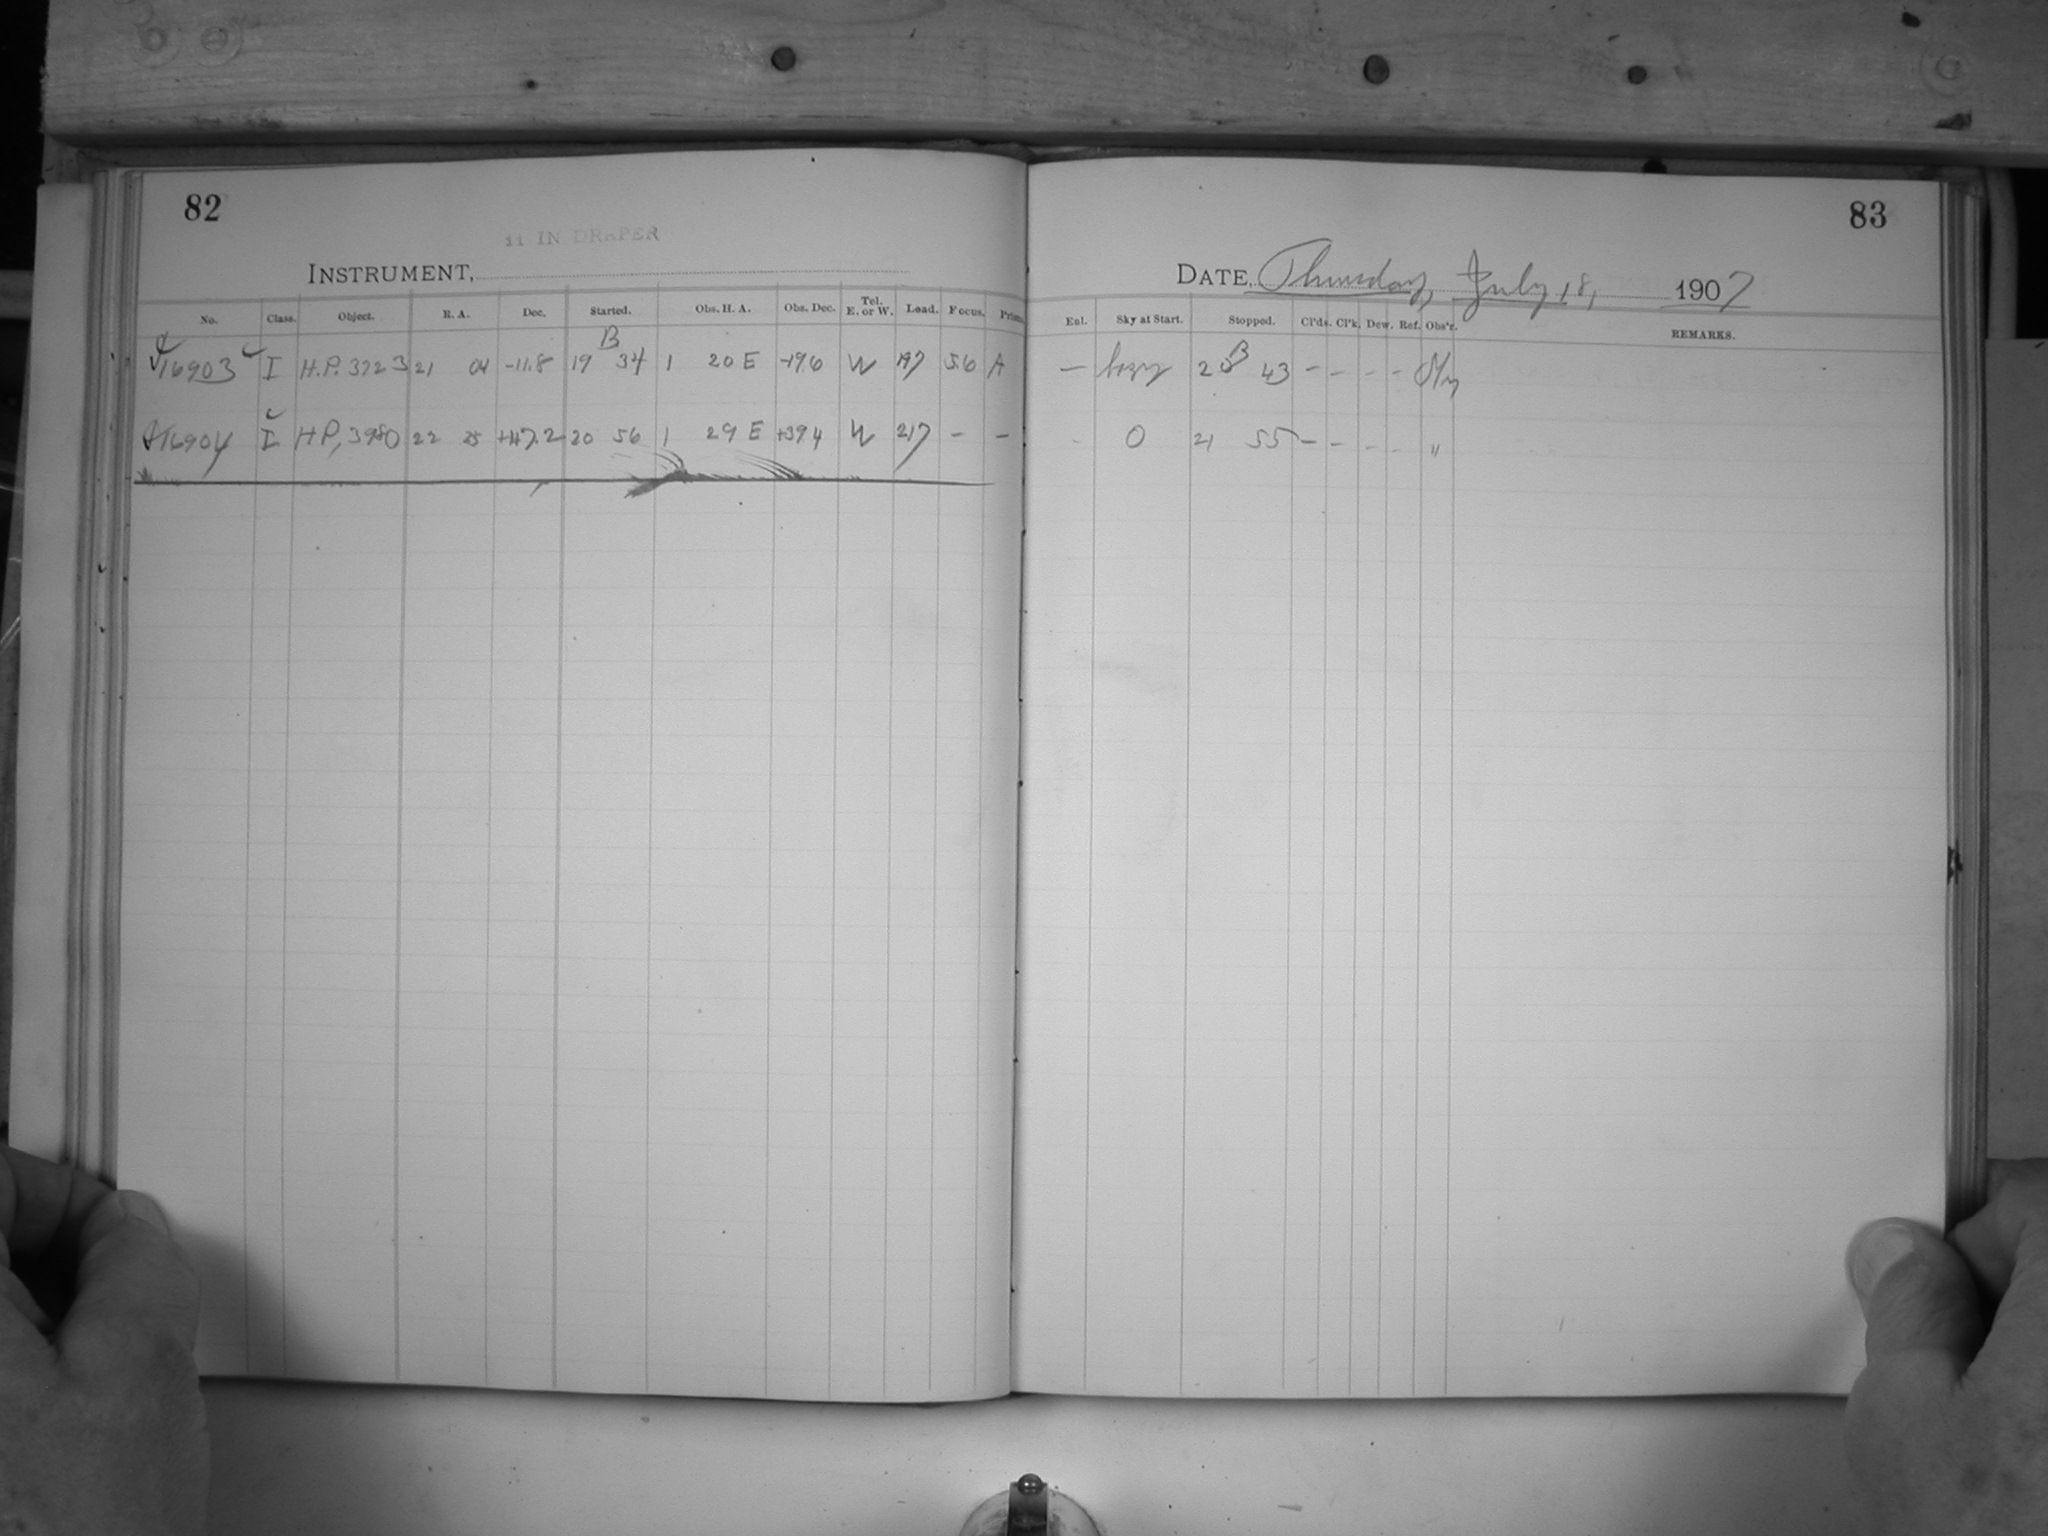 82
11 IN DRAPER
INSTRUMENT,
No. Class. Object. R. A. Dec. Started. Obs. H. A. Obs. Dec. Tel. E. or W. Load. Focus. Prism
B
16903 I H.P. 3723 21 04 -11.8 19 34 1 20 E -196 W 197 5.6 A
16904 I H.P. 3980 22 25 +47.2 20 56 1 29 E +394 W 217 - -
83
DATE, Thursday, July 18, 1907
Enl. Sky at Start. Stopped. Cl'ds. Cl'k. Dew. Ref. Obs'r. REMARKS.
B
- hazy 20 43 - - - -
- 0 21 55 - - - - "